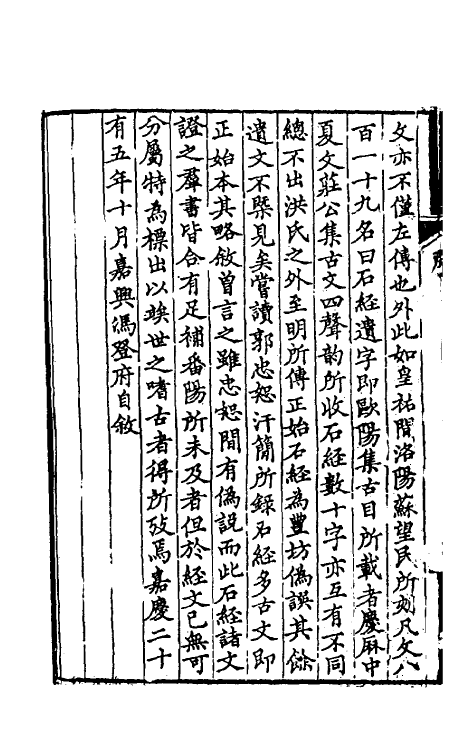 文亦不僅左傳也外此如皇祐閒洛陽蘇望民所刻凡文八
百一十九名曰石經遺字即歐陽集古目所載者慶厤中
夏文莊公集古文四聲韵所收石經數十字亦互有不同
總不出洪氏之外至明所傳正始石經為豐坊偽誤其餘
遺文不槩見矣嘗讀郭忠恕汗簡所錄石經多古文即
正始本其略敘曾言之雖忠恕閒有偽說而此石經諸文
證之羣書皆合有足補番陽所未及者但於經文已無可
分屬特為標出以竢世之嗜古者得所攷焉嘉慶二十
有五年十月嘉興馮登府自敘